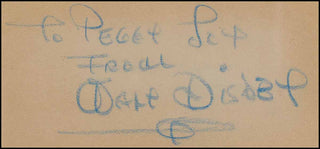 To Peggy Lip
From
Walt Disney